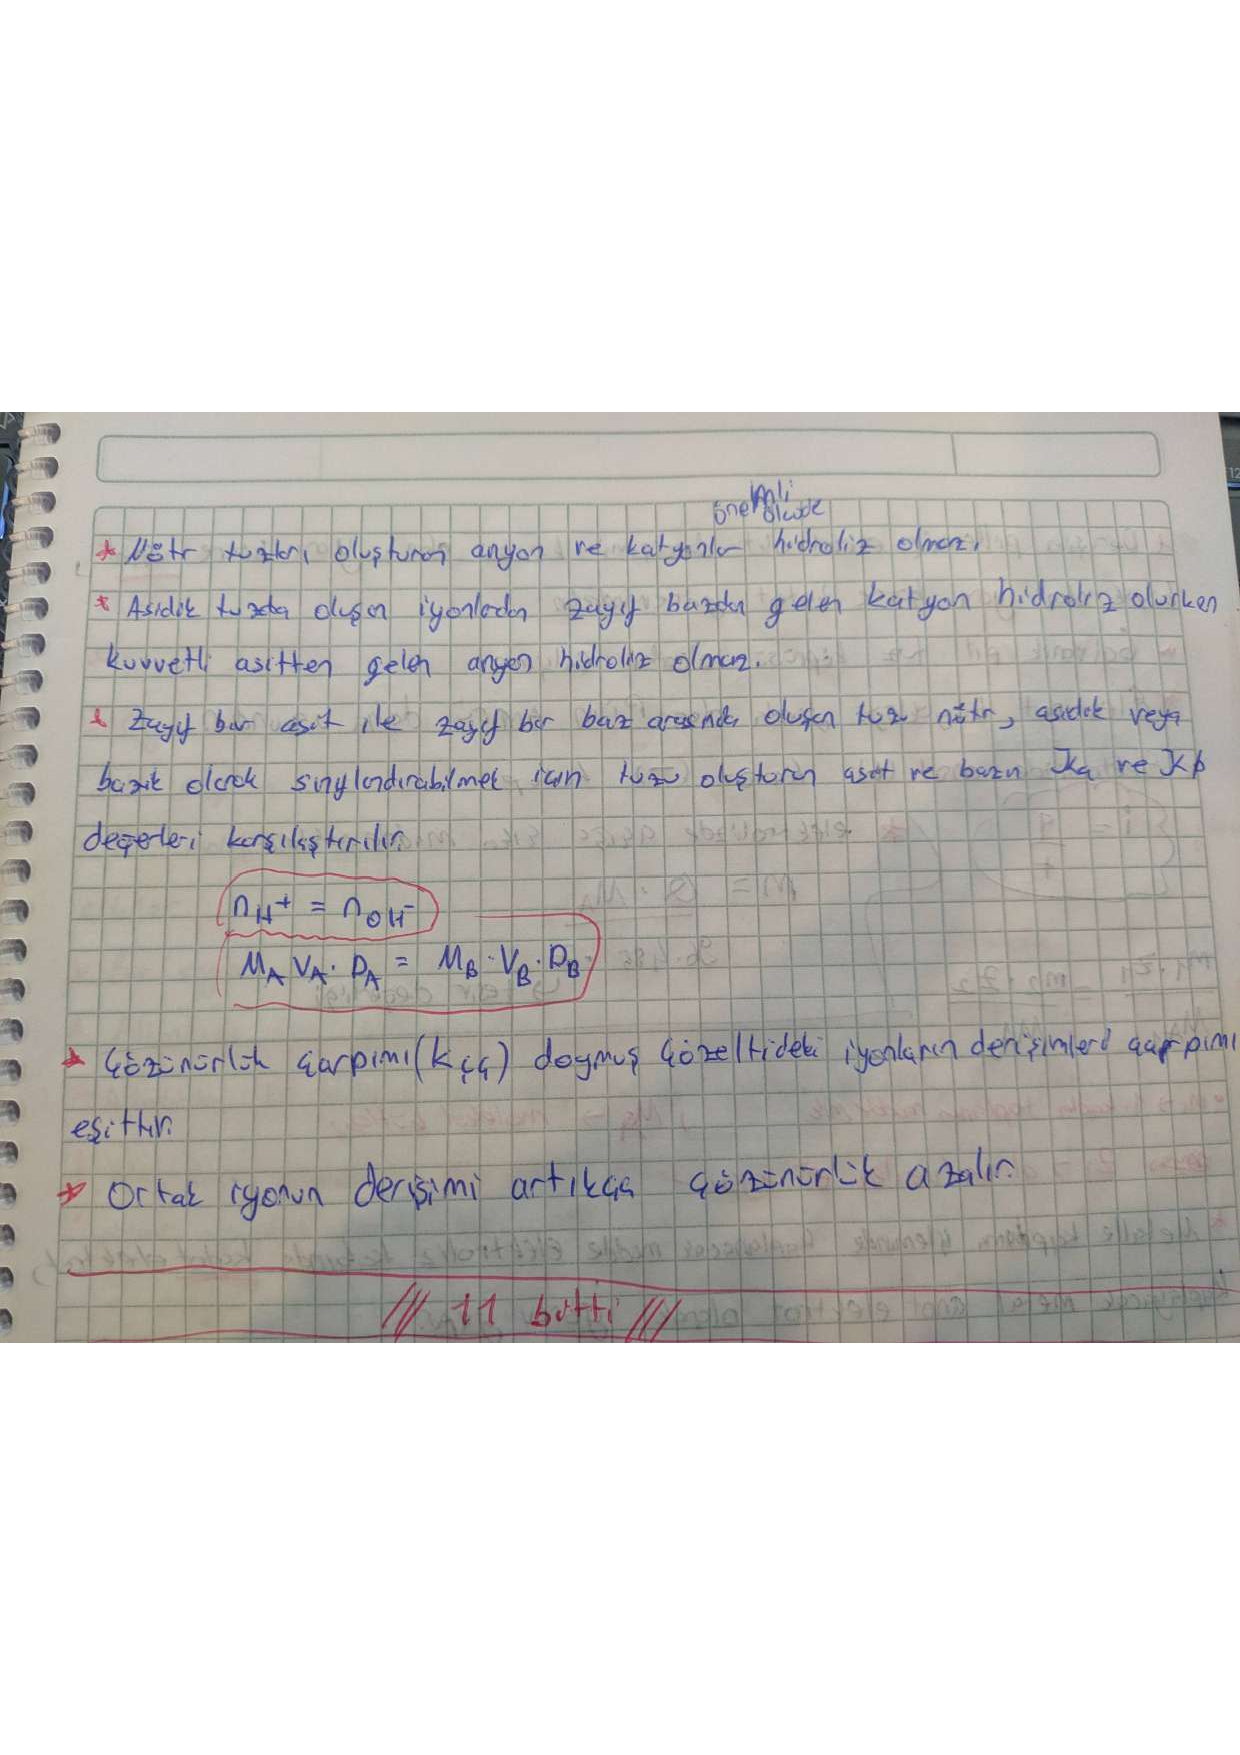 önemli
ölçüde
* Nötr tuzları oluşturan anyon ve katyonlar hidroliz olmaz.
* Asidik tuzda oluşan iyonlardan zayıf bazdan gelen katyon hidroliz olurken
kuvvetli asitten gelen anyon hidroliz olmaz.
* Zayıf bir asit ile zayıf bir baz arasında oluşan tuzu nötr, asidik veya
bazik olarak sınıflandırabilmek için tuzu oluşturan asit ve bazın Ka ve Kb
değerleri karşılaştırılır.
nH+ = nOH-
MA VA. DA = MB. VB. DB
* Çözünürlük çarpımı (Kçç) doymuş çözeltideki iyonların derişimleri çarpımı
eşittir.
* Ortak iyonun derişimi artıkça çözünürlük azalır.
/// 11 bitti ///